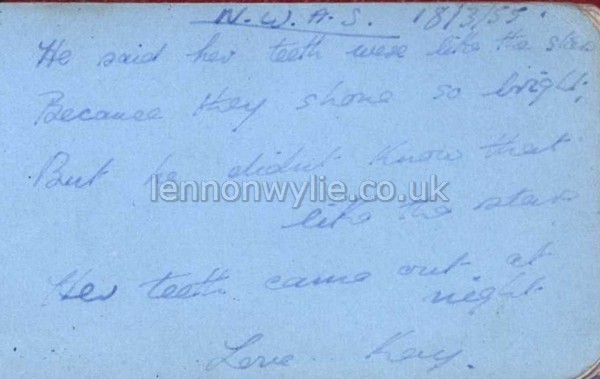 N.W.A.S. 18/3/55
He said her teeth were like the stars
Because they shone so bright;
But he didnt know that
lennonwylie.co.uk
like the stars
Her teeth came out at
night
Love Kay.